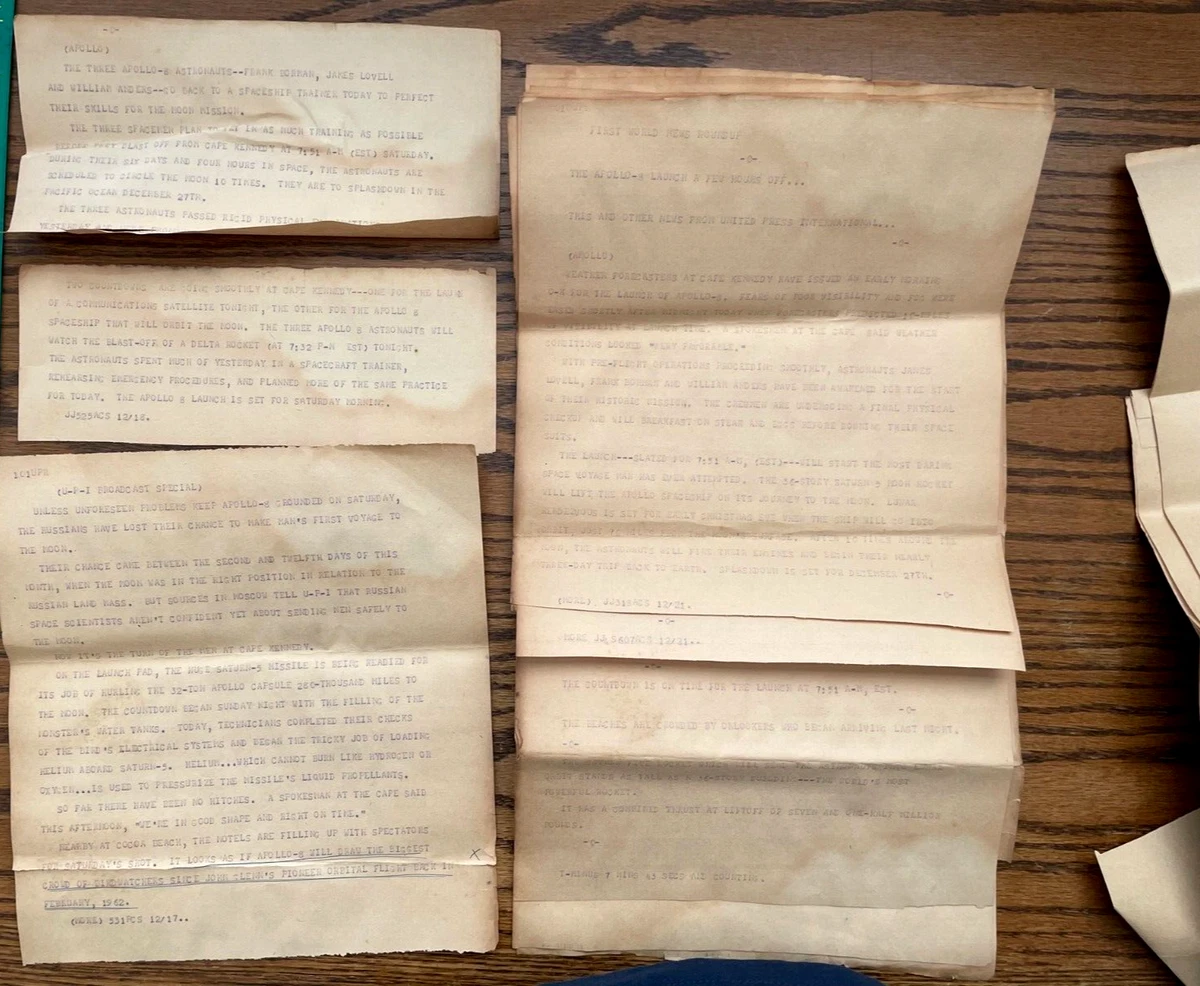 -0-
(APOLLO)
THE THREE APOLLO-8 ASTRONAUTS--FRANK BORMAN, JAMES LOVELL
AND WILLIAM ANDERS--GO BACK TO A SPACESHIP TRAINER TODAY TO PERFECT
THEIR SKILLS FOR THE MOON MISSION.
THE THREE SPACEMEN PLAN TO IN AS MUCH TRAINING AS POSSIBLE
BLAST OFF FROM CAPE KENNEDY AT 7:51 A-M (EST) SATURDAY.
DURING THEIR SIX DAYS AND FOUR HOURS IN SPACE, THE ASTRONAUTS ARE
SCHEDULED TO CIRCLE THE MOON 10 TIMES. THEY ARE TO SPLASHDOWN IN THE
PACIFIC OCEAN DECEMBER 27TH.
THE THREE ASTRONAUTS PASSED RIGID PHYSICAL
TWO COUNTDOWNS ARE GOING SMOOTHLY AT CAPE KENNEDY---ONE FOR THE
OF A COMMUNICATIONS SATELLITE TONIGHT, THE OTHER FOR THE APOLLO 8
SPACESHIP THAT WILL ORBIT THE MOON. THE THREE APOLLO 8 ASTRONAUTS WILL
WATCH THE BLAST-OFF OF A DELTA ROCKET (AT 7:32 P-M EST) TONIGHT.
THE ASTRONAUTS SPENT MUCH OF YESTERDAY IN A SPACECRAFT TRAINER,
REHEARSING EMERGENCY PROCEDURES, AND PLANNED MORE OF THE SAME PRACTICE
FOR TODAY. THE APOLLO 8 LAUNCH IS SET FOR SATURDAY MORNING.
JJ525ACS 12/18.
101UPR
(U-P-I BROADCAST SPECIAL)
UNLESS UNFORESEEN PROBLEMS KEEP APOLLO-8 GROUNDED ON SATURDAY,
THE RUSSIANS HAVE LOST THEIR CHANCE TO MAKE MAN'S FIRST VOYAGE TO
THE MOON.
THEIR CHANCE CAME BETWEEN THE SECOND AND TWELFTH DAYS OF THIS
MONTH, WHEN THE MOON WAS IN THE RIGHT POSITION IN RELATION TO THE
RUSSIAN LAND MASS. BUT SOURCES IN MOSCOW TELL U-P-I THAT RUSSIAN
SPACE SCIENTISTS AREN'T CONFIDENT YET ABOUT SENDING MEN SAFELY TO
THE MOON.
NOW IT'S THE TURN OF THE MEN AT CAPE KENNEDY.
ON THE LAUNCH PAD, THE HUGE SATURN-5 MISSILE IS BEING READIED FOR
ITS JOB OF HURLING THE 32-TON APOLLO CAPSULE 280-THOUSAND MILES TO
THE MOON. THE COUNTDOWN BEGAN SUNDAY NIGHT WITH THE FILLING OF THE
MONSTER'S WATER TANKS. TODAY, TECHNICIANS COMPLETED THEIR CHECKS
OF THE BIRD'S ELECTRICAL SYSTEMS AND BEGAN THE TRICKY JOB OF LOADING
HELIUM ABOARD SATURN-5. HELIUM...WHICH CANNOT BURN LIKE HYDROGEN OR
OXYGEN...IS USED TO PRESSURIZE THE MISSILE'S LIQUID PROPELLANTS.
SO FAR THERE HAVE BEEN NO HITCHES. A SPOKESMAN AT THE CAPE SAID
THIS AFTERNOON, "WE'RE IN GOOD SHAPE AND RIGHT ON TIME."
NEARBY AT COCOA BEACH, THE MOTELS ARE FILLING UP WITH SPECTATORS
FOR SATURDAY'S SHOT. IT LOOKS AS IF APOLLO-8 WILL DRAW THE BIGGEST
CROWD OF BIRDWATCHERS SINCE JOHN GLENN'S PIONEER ORBITAL FLIGHT BACK IN
FEBRUARY, 1962.
(MORE) 531PCS 12/17..
FIRST WORLD NEWS ROUNDUP
-0-
THE APOLLO-8 LAUNCH A FEW HOURS OFF...
THIS AND OTHER NEWS FROM UNITED PRESS INTERNATIONAL...
-0-
(APOLLO)
WEATHER FORECASTERS AT CAPE KENNEDY HAVE ISSUED AN EARLY MORNING
O-K FOR THE LAUNCH OF APOLLO-8. FEARS OF POOR VISIBILITY AND FOG WERE
OF VISIBILITY AT LAUNCH TIME. A SPOKESMEN AT THE CAPE SAID WEATHER
CONDITIONS LOOKED "VERY FAVORABLE."
WITH PRE-FLIGHT OPERATIONS PROCEEDING SMOOTHLY, ASTRONAUTS JAMES
LOVELL, FRANK BORMAN AND WILLIAM ANDERS HAVE BEEN AWAKENED FOR THE START
OF THEIR HISTORIC MISSION. THE CREWMEN ARE UNDERGOING A FINAL PHYSICAL
CHECKUP AND WILL BREAKFAST ON STEAK AND EGGS BEFORE DONNING THEIR SPACE
SUITS.
THE LAUNCH---SLATED FOR 7:51 A-M, (EST)---WILL START THE MOST DARING
SPACE VOYAGE MAN HAS EVER ATTEMPTED. THE 36-STORY SATURN-5 MOON ROCKET
WILL LIFT THE APOLLO SPACESHIP ON ITS JOURNEY TO THE MOON. LUNAR
RENDEZVOUS IS SET FOR EARLY CHRISTMAS EVE WHEN THE SHIP WILL GO INTO
MOON, THE ASTRONAUTS WILL FIRE THEIR ENGINES AND BEGIN THEIR NEARLY
THREE-DAY TRIP BACK TO EARTH. SPLASHDOWN IS SET FOR DECEMBER 27TH.
-0-
(MORE) JJ319ACS 12/21.
-0-
MORE JJ S607ACS 12/21..
-0-
THE COUNTDOWN IS ON TIME FOR THE LAUNCH AT 7:51 A-M, EST.
-0-
THE BEACHES ARE CROWDED BY ONLOOKERS WHO BEGAN ARRIVING LAST NIGHT.
-0-
STANDS AS TALL AS A 36-STORY BUILDING---THE WORLD'S MOST
POWERFUL ROCKET.
IT HAS A COMBINED THRUST AT LIFTOFF OF SEVEN AND ONE-HALF MILLION
POUNDS.
-0-
T-MINUS 7 MINS 43 SECS AND COUNTING.